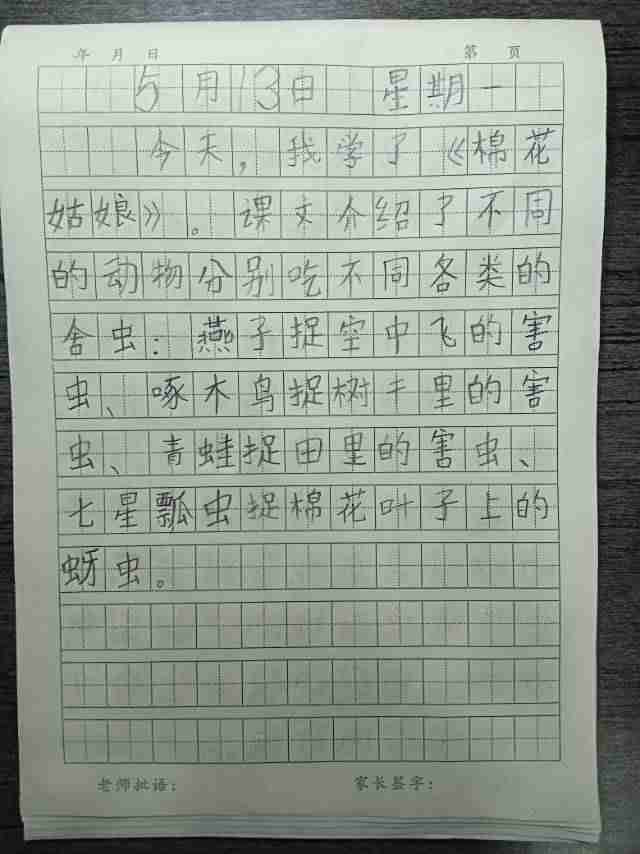 年 月 日 第 页
5月13日 星期一
今天,我学了《棉花
姑娘》。课文介绍了不同
的动物分别吃不同各类的
舍虫:燕子捉空中飞的害
虫、啄木鸟捉树丰里的害
虫、青蛙捉田里的害虫、
七星瓢虫捉棉花叶子上的
蚜虫。
老师批语: 家长签字: